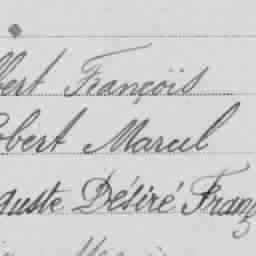 bert François
obert Marcel
guste Désiré Franç